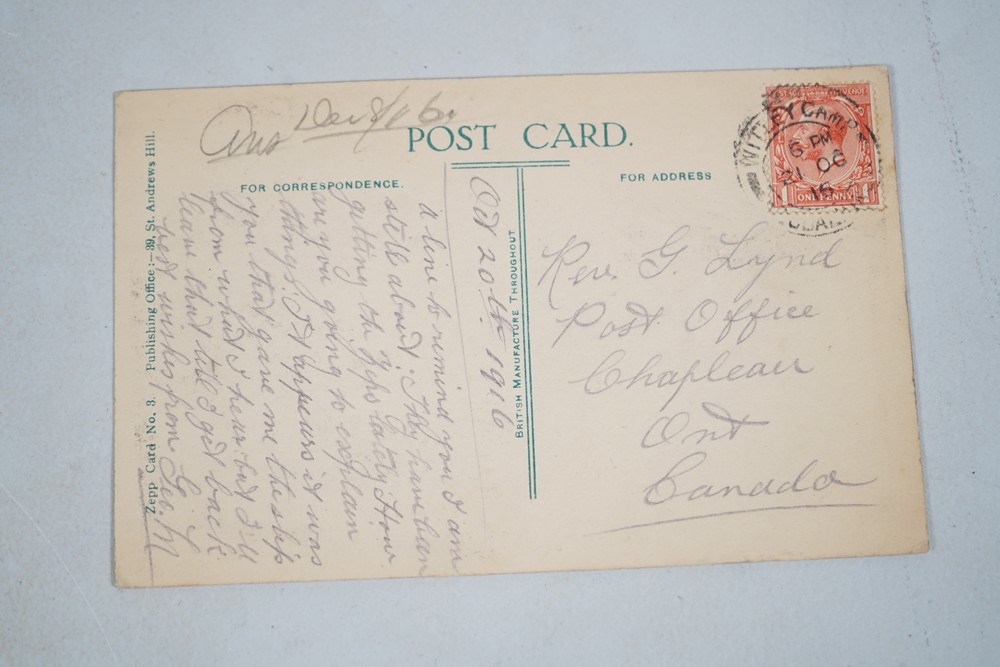 Ans Dec 8/16
POST CARD.
FOR CORRESPONDENCE.
FOR ADDRESS
WITLEY CAMP
6 PM
21 OC
16
ONE PENNY
Oct 20th 1916
a line to remind you I am
still about. They have been
getting the Zepps lately How
are you going to explain
things. It appears it was
you that gave me the slip
from what I hear but I'll
leave that till I get back
best wishes from Geo. M
BRITISH MANUFACTURE THROUGHOUT
Rev. G. Lynd
Post Office
Chapleau
Ont
Canada
Zepp Card No. 3. Publishing Office:—39, St. Andrews Hill.